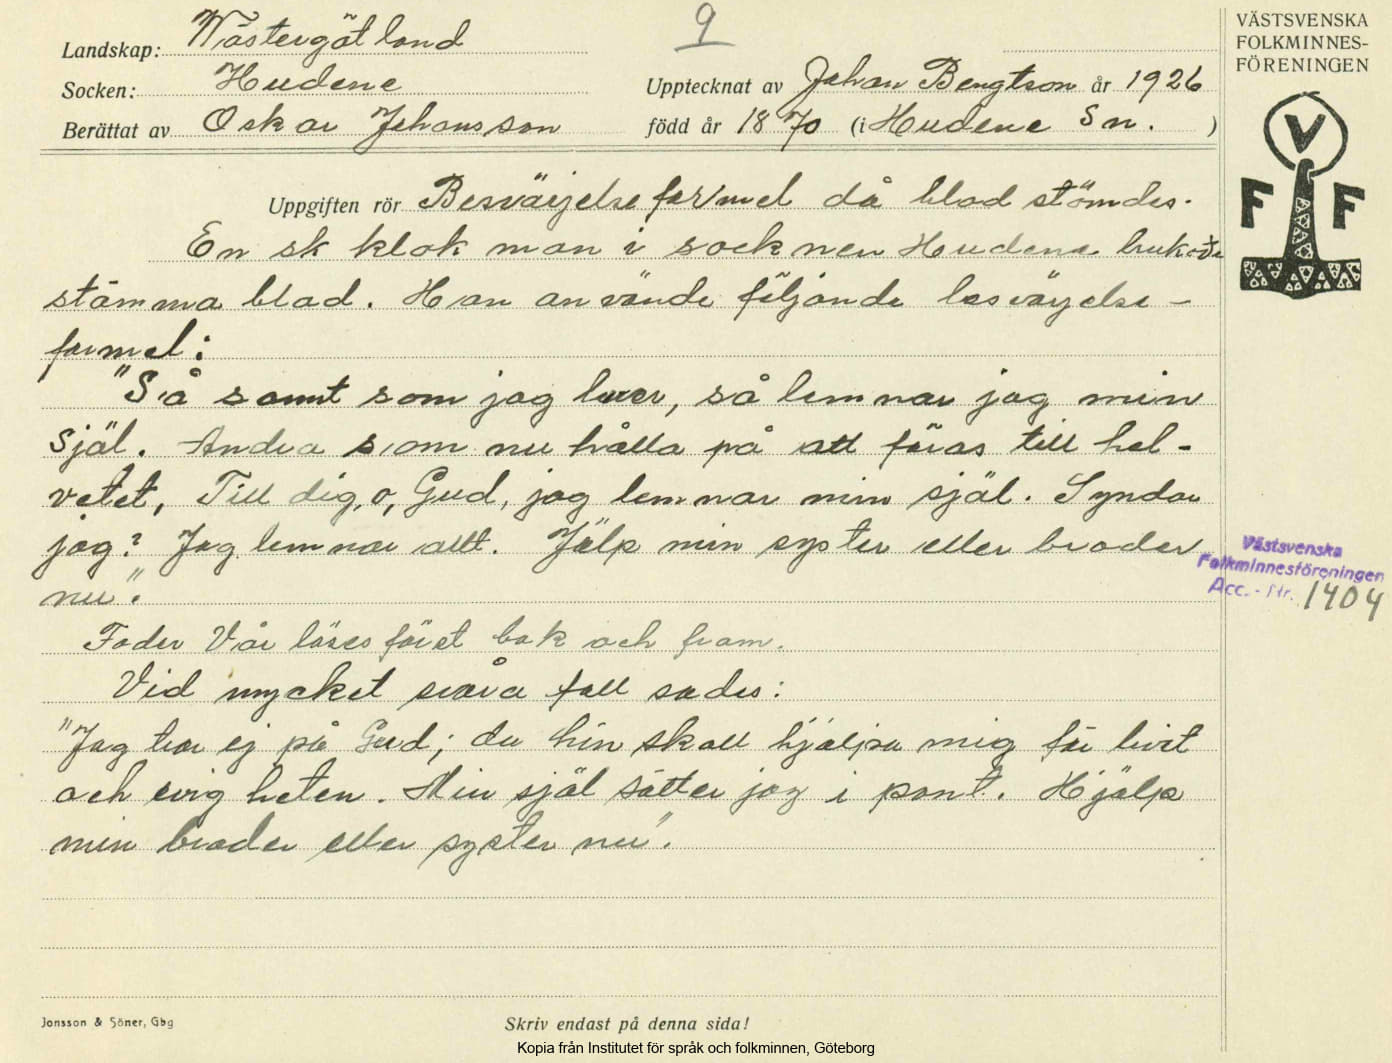 9
Landskap: Västergötland
Socken: Hudene
Upptecknat av Johan Bengtson år 1926
Berättat av Oskar Johansson
född år 1870 (i Hudene Sn. )
Uppgiften rör Besvärjelseformel då blod stämdes.
En sk klok man i socknen Hudene brukade
stämma blod. Han använde följande besvärjelse-
formel:
"Så sannt som jag lever, så lemnar jag min
själ. Andra som nu hålla på att föras till hel-
vetet, Till dig, o, Gud, jag lemnar min själ. Syndar
jag? Jag lemnar allt. Jälp min syster eller broder
nu."
Fader Vår läses först bak och fram.
Vid mycket svåra fall sades:
"Jag tror ej på Gud; du hin skall hjälpa mig för livet
och evigheten. Min själ sätter jag i pant. Hjälp
min broder eller syster nu".
VÄSTSVENSKA
FOLKMINNES-
FÖRENINGEN
V
F F
Västsvenska
Folkminnesföreningen
Acc. - Nr. 1404
Jonsson & Söner, Gbg
Skriv endast på denna sida!
Kopia från Institutet för språk och folkminnen, Göteborg